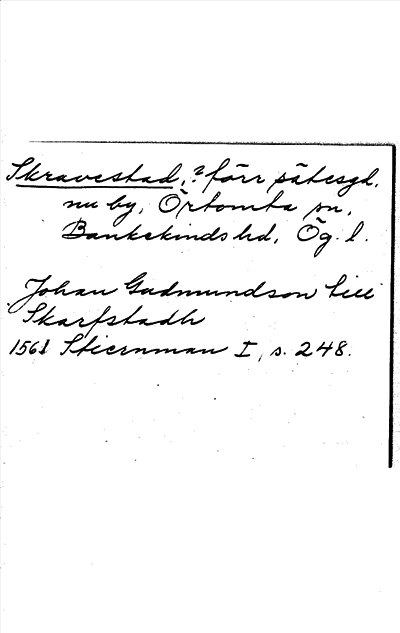 Skravestad, ? förr sätesgd.
nu by, Örtomta sn,
Bankekinds hd, Ög. l.
Johan Gudmundson till
Skarfstadh
1561 Stiernman I, s. 248.